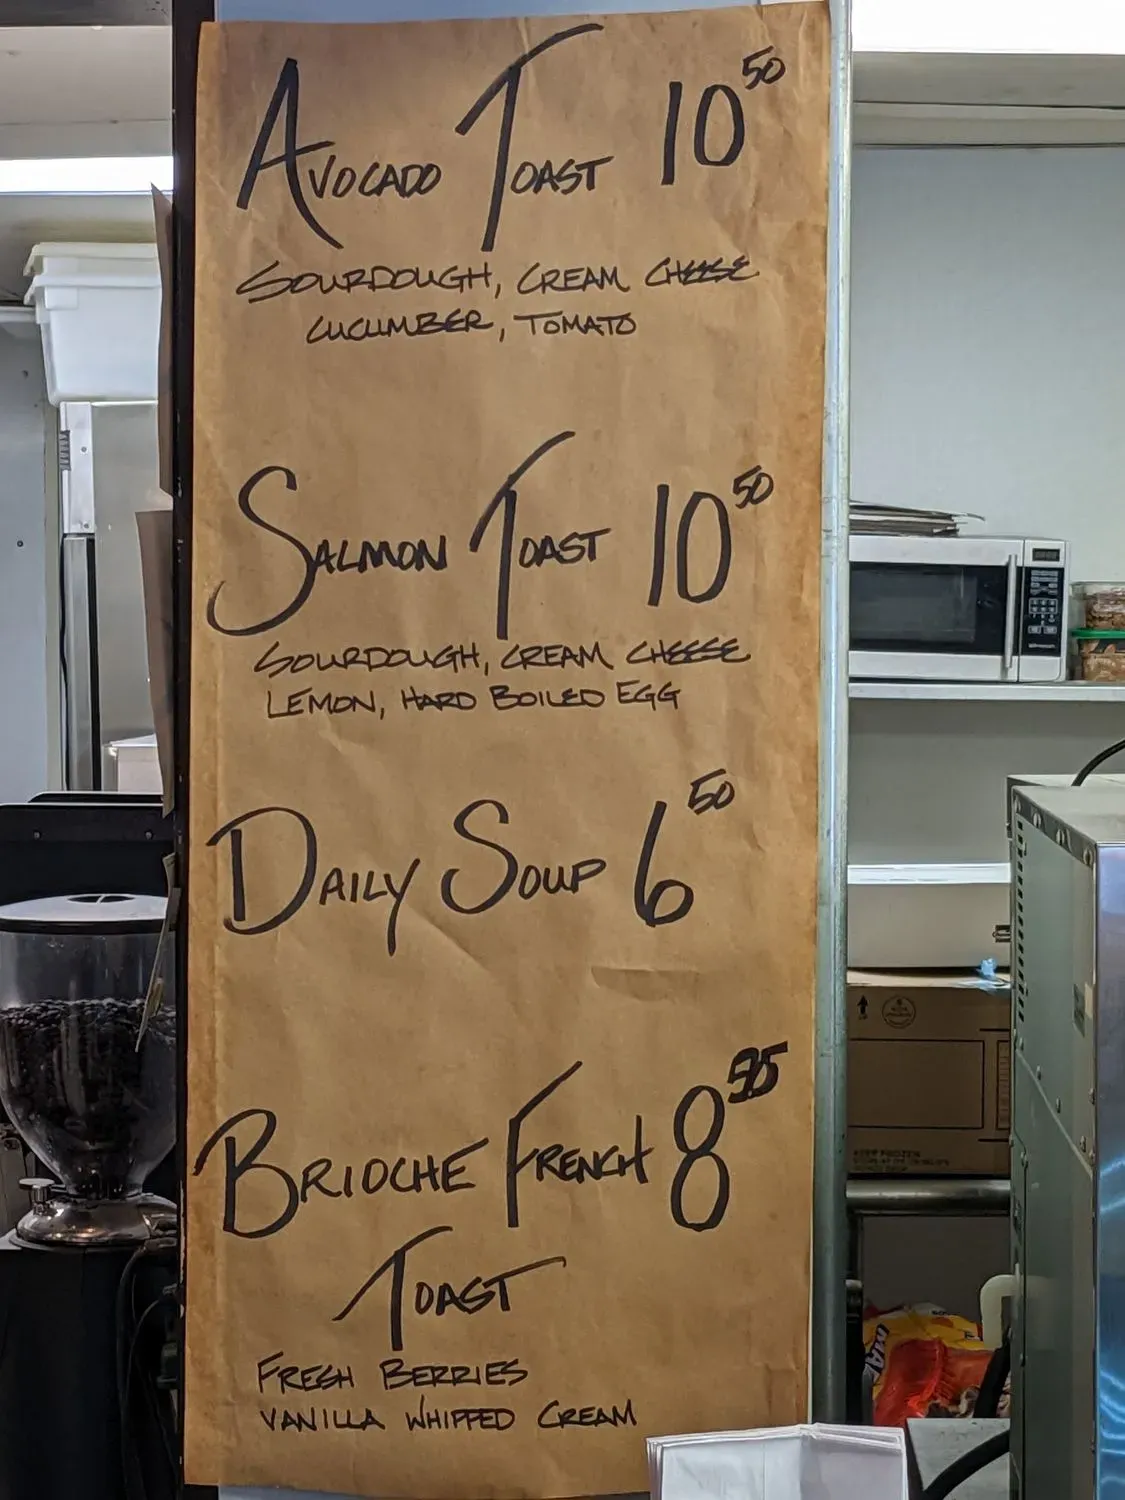 AVOCADO TOAST 10 50
SOURDOUGH, CREAM CHEESE
CUCUMBER, TOMATO
SALMON TOAST 10 50
SOURDOUGH, CREAM CHEESE
LEMON, HARD BOILED EGG
DAILY SOUP 6 50
BRIOCHE FRENCH 8
TOAST
FRESH BERRIES
VANILLA WHIPPED CREAM
KEEP FROZEN